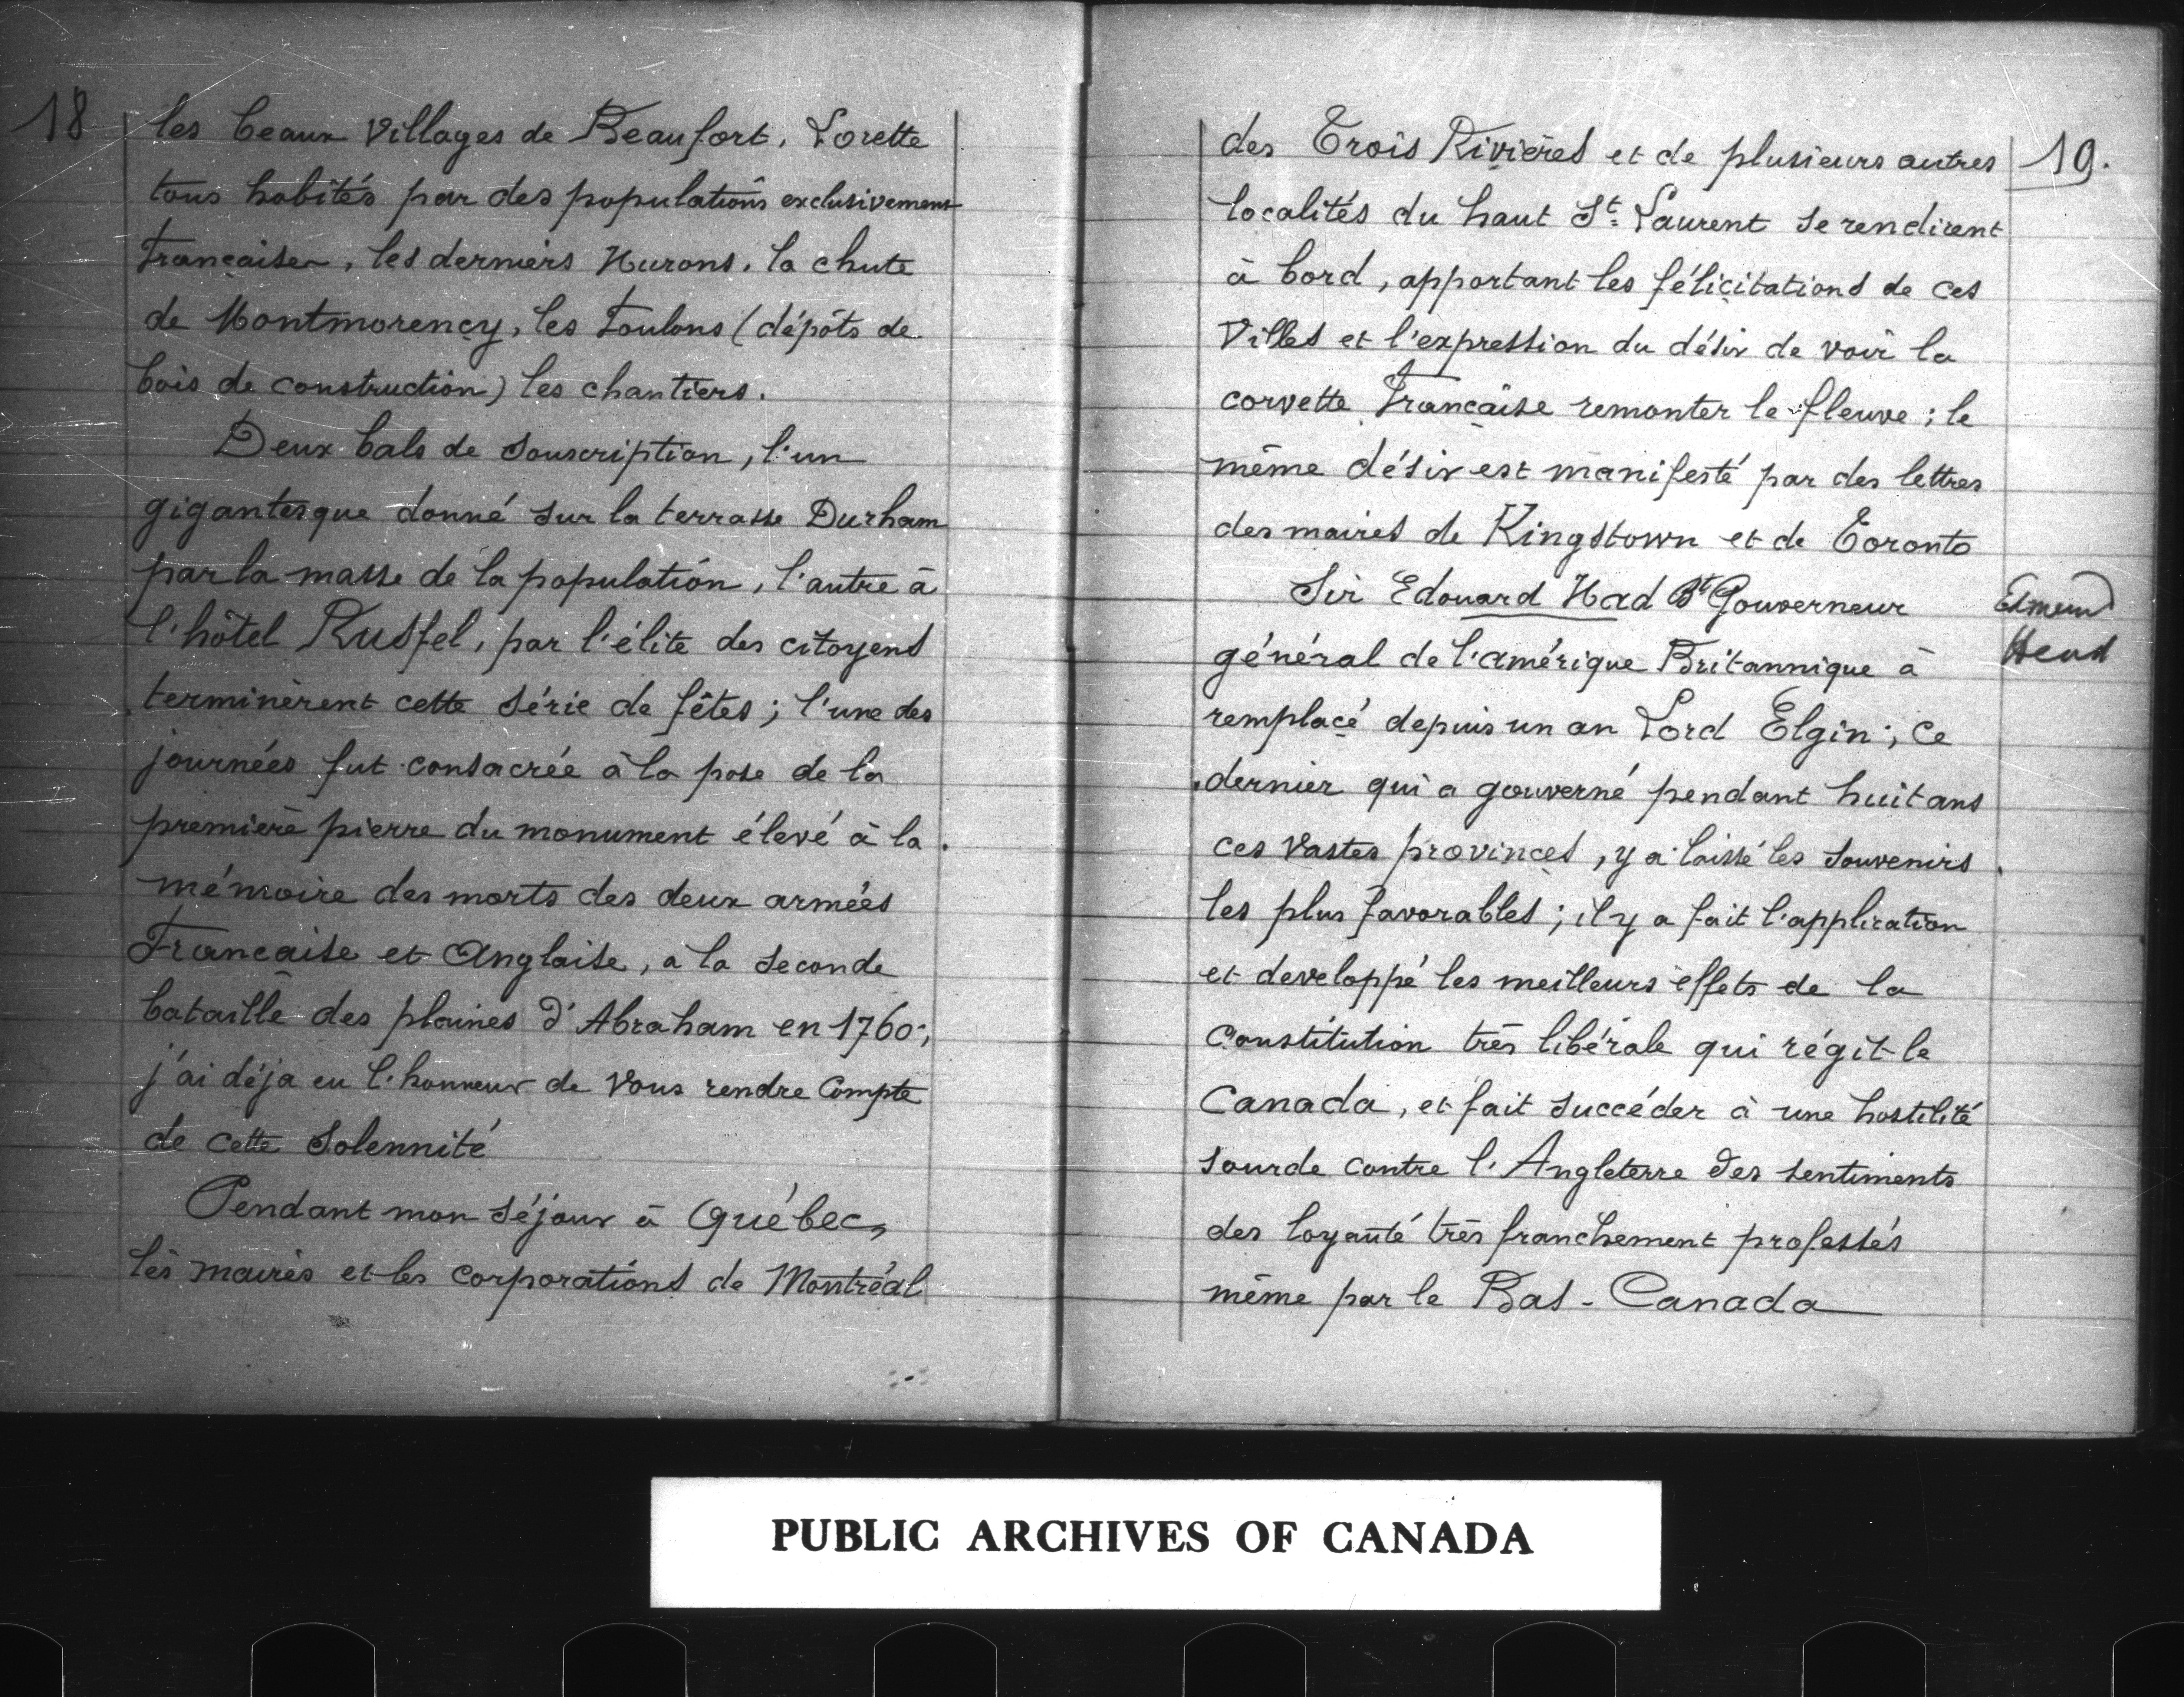 18
les beaux villages de Beaufort, Lorette
tous habités par des populations exclusivement
Française, les derniers Hurons. la chute
de Montmorency, les Foulons (dépôts de
bois de construction) les chantiers.
Deux bals de souscription, l'un
gigantesque donné sur la terrasse Durham
par la masse de la population, l'autre à
l'hôtel Rusfel, par l'élite des citoyens
terminèrent cette série de fêtes; l'une des
journées fut consacrée à la pose de la
première pierre du monument élevé à la
mémoire des morts des deux armées
Française et Anglaise, a la seconde
bataille des plaines d'Abraham en 1760;
j'ai déja eu l'honneur de vous rendre Compte
de cette Solennité
Pendant mon séjour à Québec,
les maires et les corporations de Montréal
19.
des Trois Rivières et de plusieurs autres
localités du haut St. Laurent se rendirent
à bord, apportant les félicitations de ces
Villes et l'expression du désir de voir la
corvette Française remonter le fleuve; le
même désir est manifesté par des lettres
des maires de Kingstown et de Toronto
Sir Edouard Had Bt Gouverneur
Edmund
Head
général de l'amérique Britannique à
remplacé depuis un an Lord Elgin; ce
dernier qui a gouverné pendant huit ans
ces vastes provinces, y a laissé les souvenirs
les plus favorables; il y a fait l'application
et developpé les meilleurs effets de la
Constitution très libérale qui régit le
Canada, et fait succéder à une hostilité
sourde contre l'Angleterre des sentiments
des loyauté très franchement professés
même par le Bas-Canada
PUBLIC ARCHIVES OF CANADA